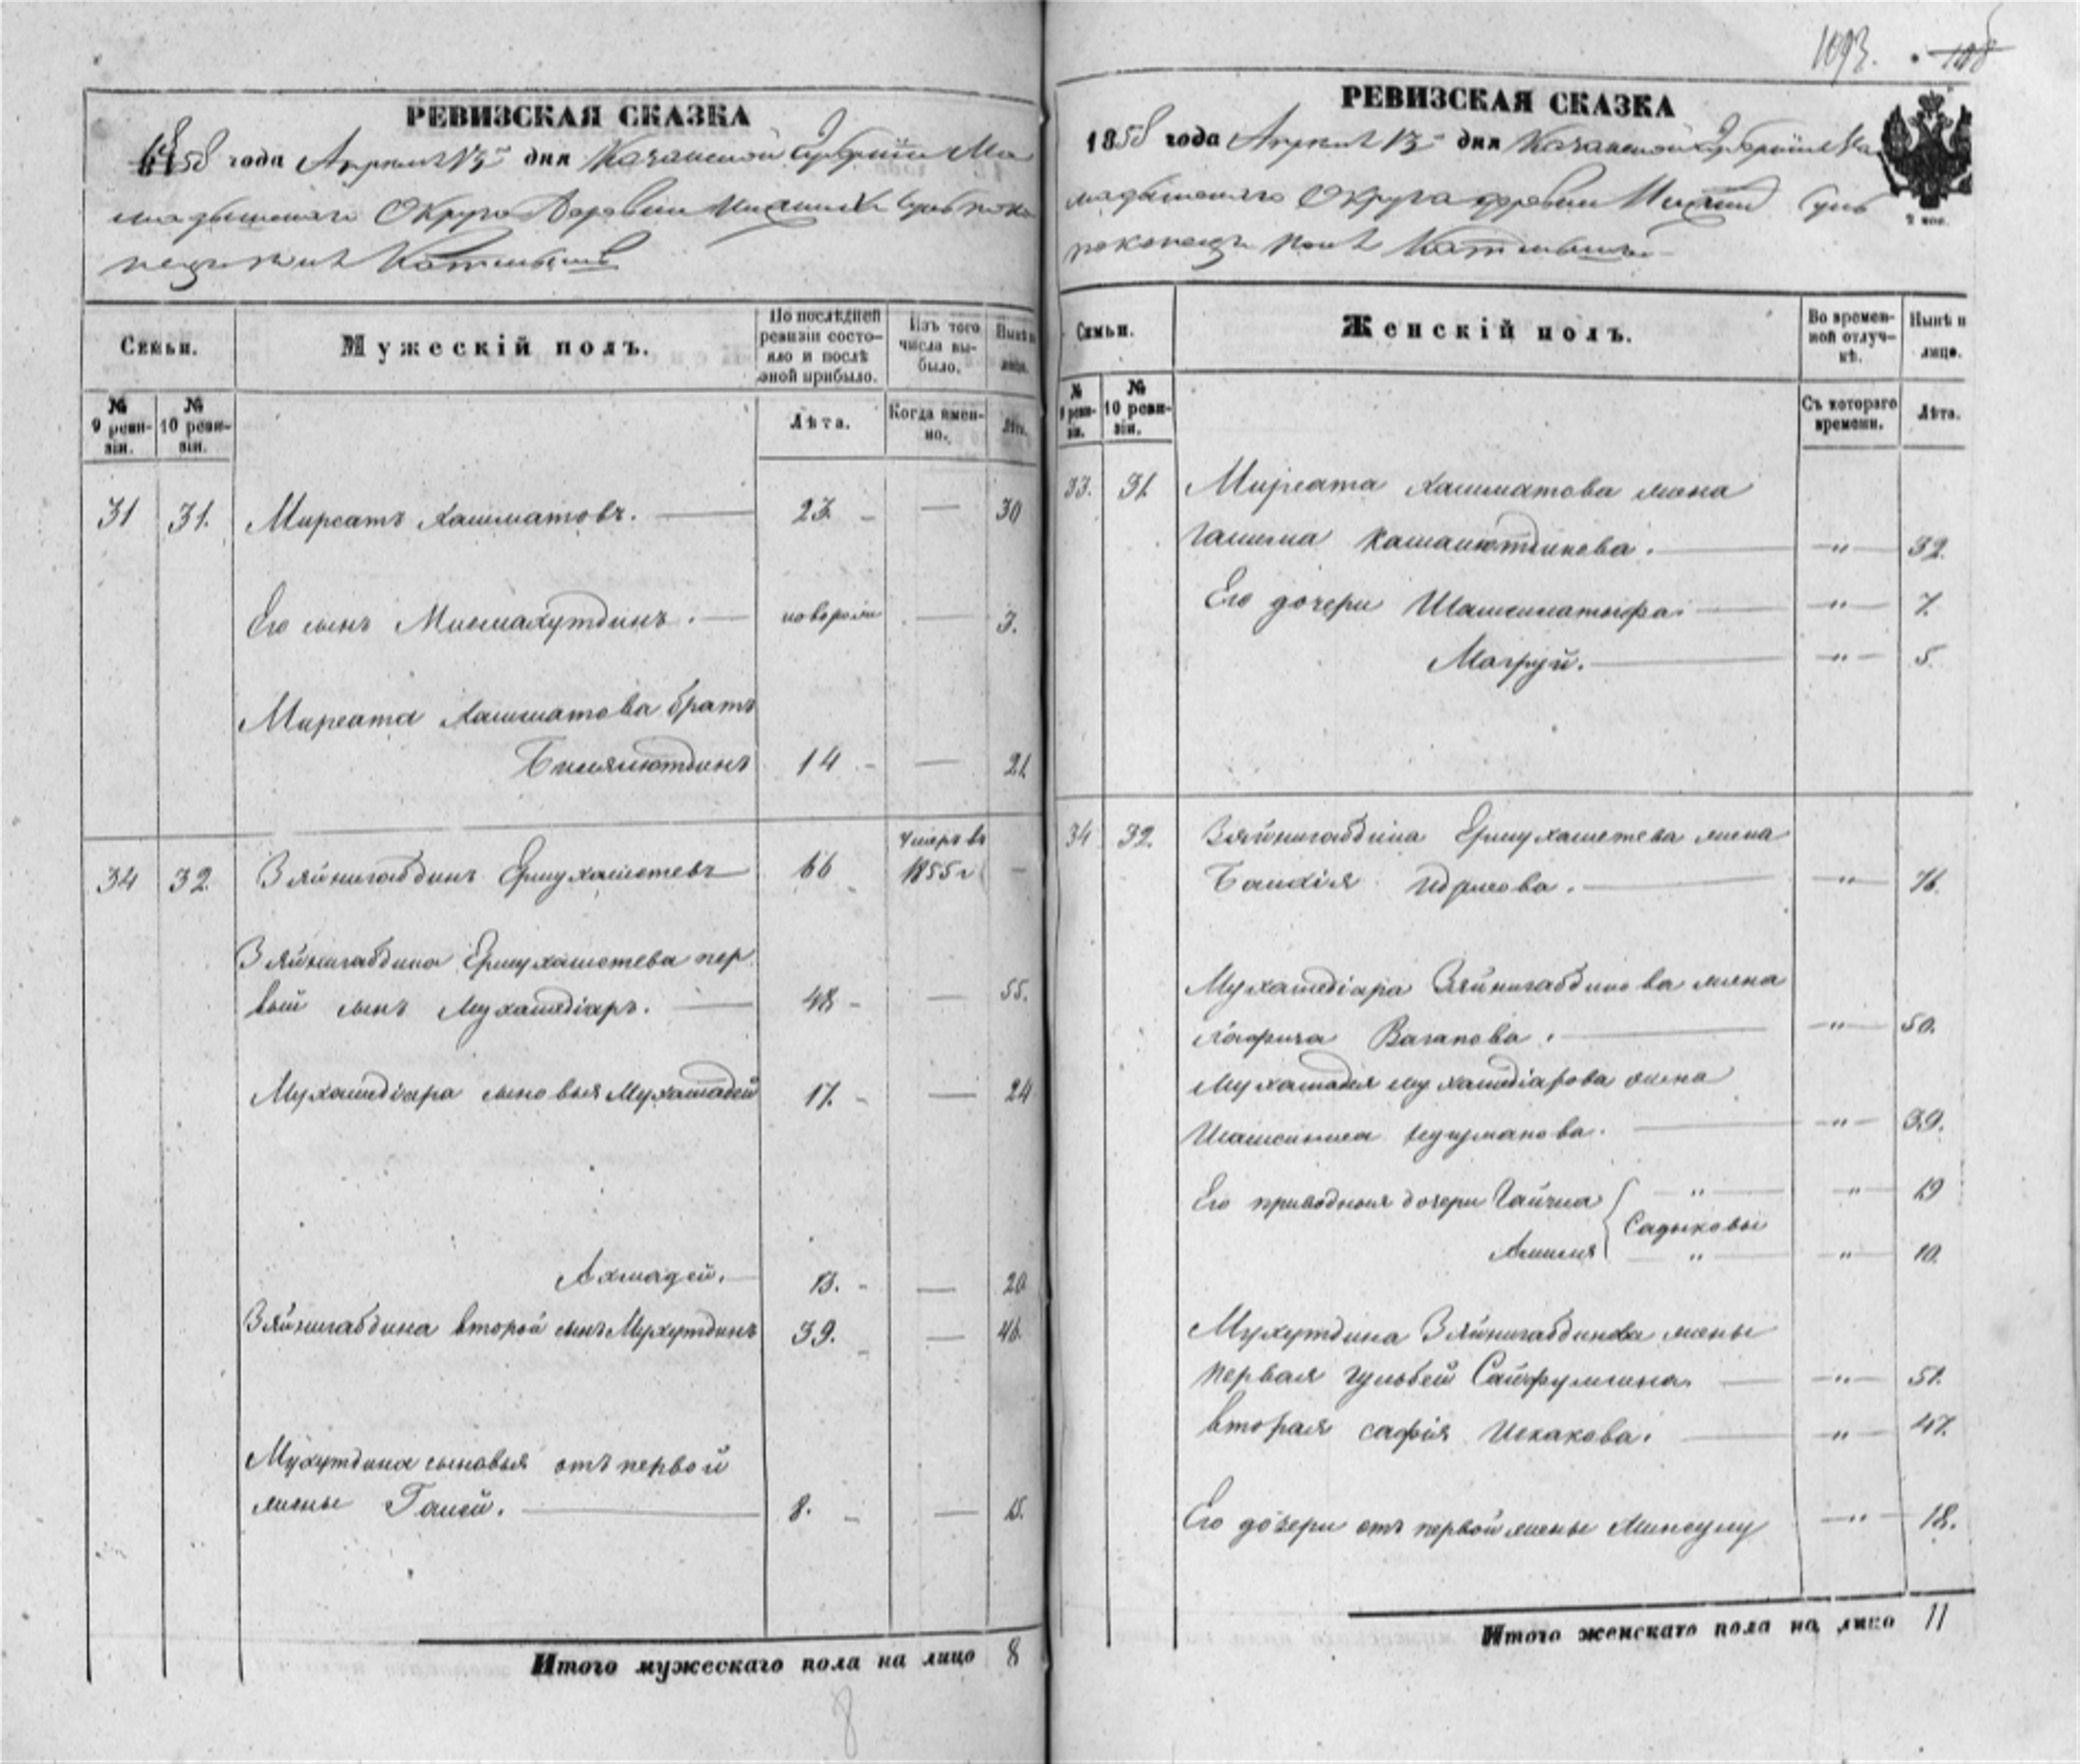 1093. 108
РЕВИЗСКАЯ СКАЗКА
1858 года Апреля 13 дня Казанской Губернии Ма
мадышскаго Округа Деревни
РЕВИЗСКАЯ СКАЗКА
1858 года Апреля 13 дня Казанской Губернии Ма
мадышскаго Округа деревни
2 коп.
Семьи.
Мужескій полъ.
По послѣдней ревизіи состояло и послѣ оной прибыло.
Изъ того числа выбыло.
Нынѣ на лицо.
№ 9 ревизіи.
№ 10 ревизіи.
Лѣта.
Когда именно.
Лѣта.
31 31. Мирсатъ Хашматовъ. 23 — 30
Его сынъ Мисмахутдинъ. новорож — 3.
Мирсата Хашматова братъ
Билялютдинъ 14 — 21
умеръ въ
34 32 Зяйнигабдинъ Ермухаметевъ 66 1855 г —
Зяйнигабдина Ермухаметева пер
вый сынъ Мухамедіаръ. 48 — 55.
Мухамедіара сыновья Мухамадей 17. — 24
Ахмадей. 13. — 20
Зяйнигабдина второй сынъ Мухутдинъ 39. — 46.
Мухутдина сыновья отъ первой
жены Ганей. 8. — 15.
Итого мужескаго пола на лицо 8
8
Семьи.
Женскій полъ.
Во временной отлучкѣ.
Нынѣ на лицо.
№ 9 ревизіи.
№ 10 ревизіи.
Съ котораго времени.
Лѣта.
33. 31. Мирсата Хашматова жена
Камалютдинова. — " — 32.
Его дочери — " — 7.
Магруй. — " — 5.
34 32. Зяйнигабдина Ермухаметева жена
Идрисова. — " — 76.
Мухамедіара Зяйнигабдинова жена
Вагапова. — " — 50.
Мухамадея Мухамедіарова жена
— " — 39.
Его приводныя дочери " — " — 19
Садыковы
" — " — 10.
Мухутдина Зяйнигабдинова жены
первая Гульбей Сайфуллина. — " — 51.
вторая Сафія Искакова. — " — 47.
Его дочери отъ первой жены Минсулу — " — 18.
Итого женскаго пола на лицо 11